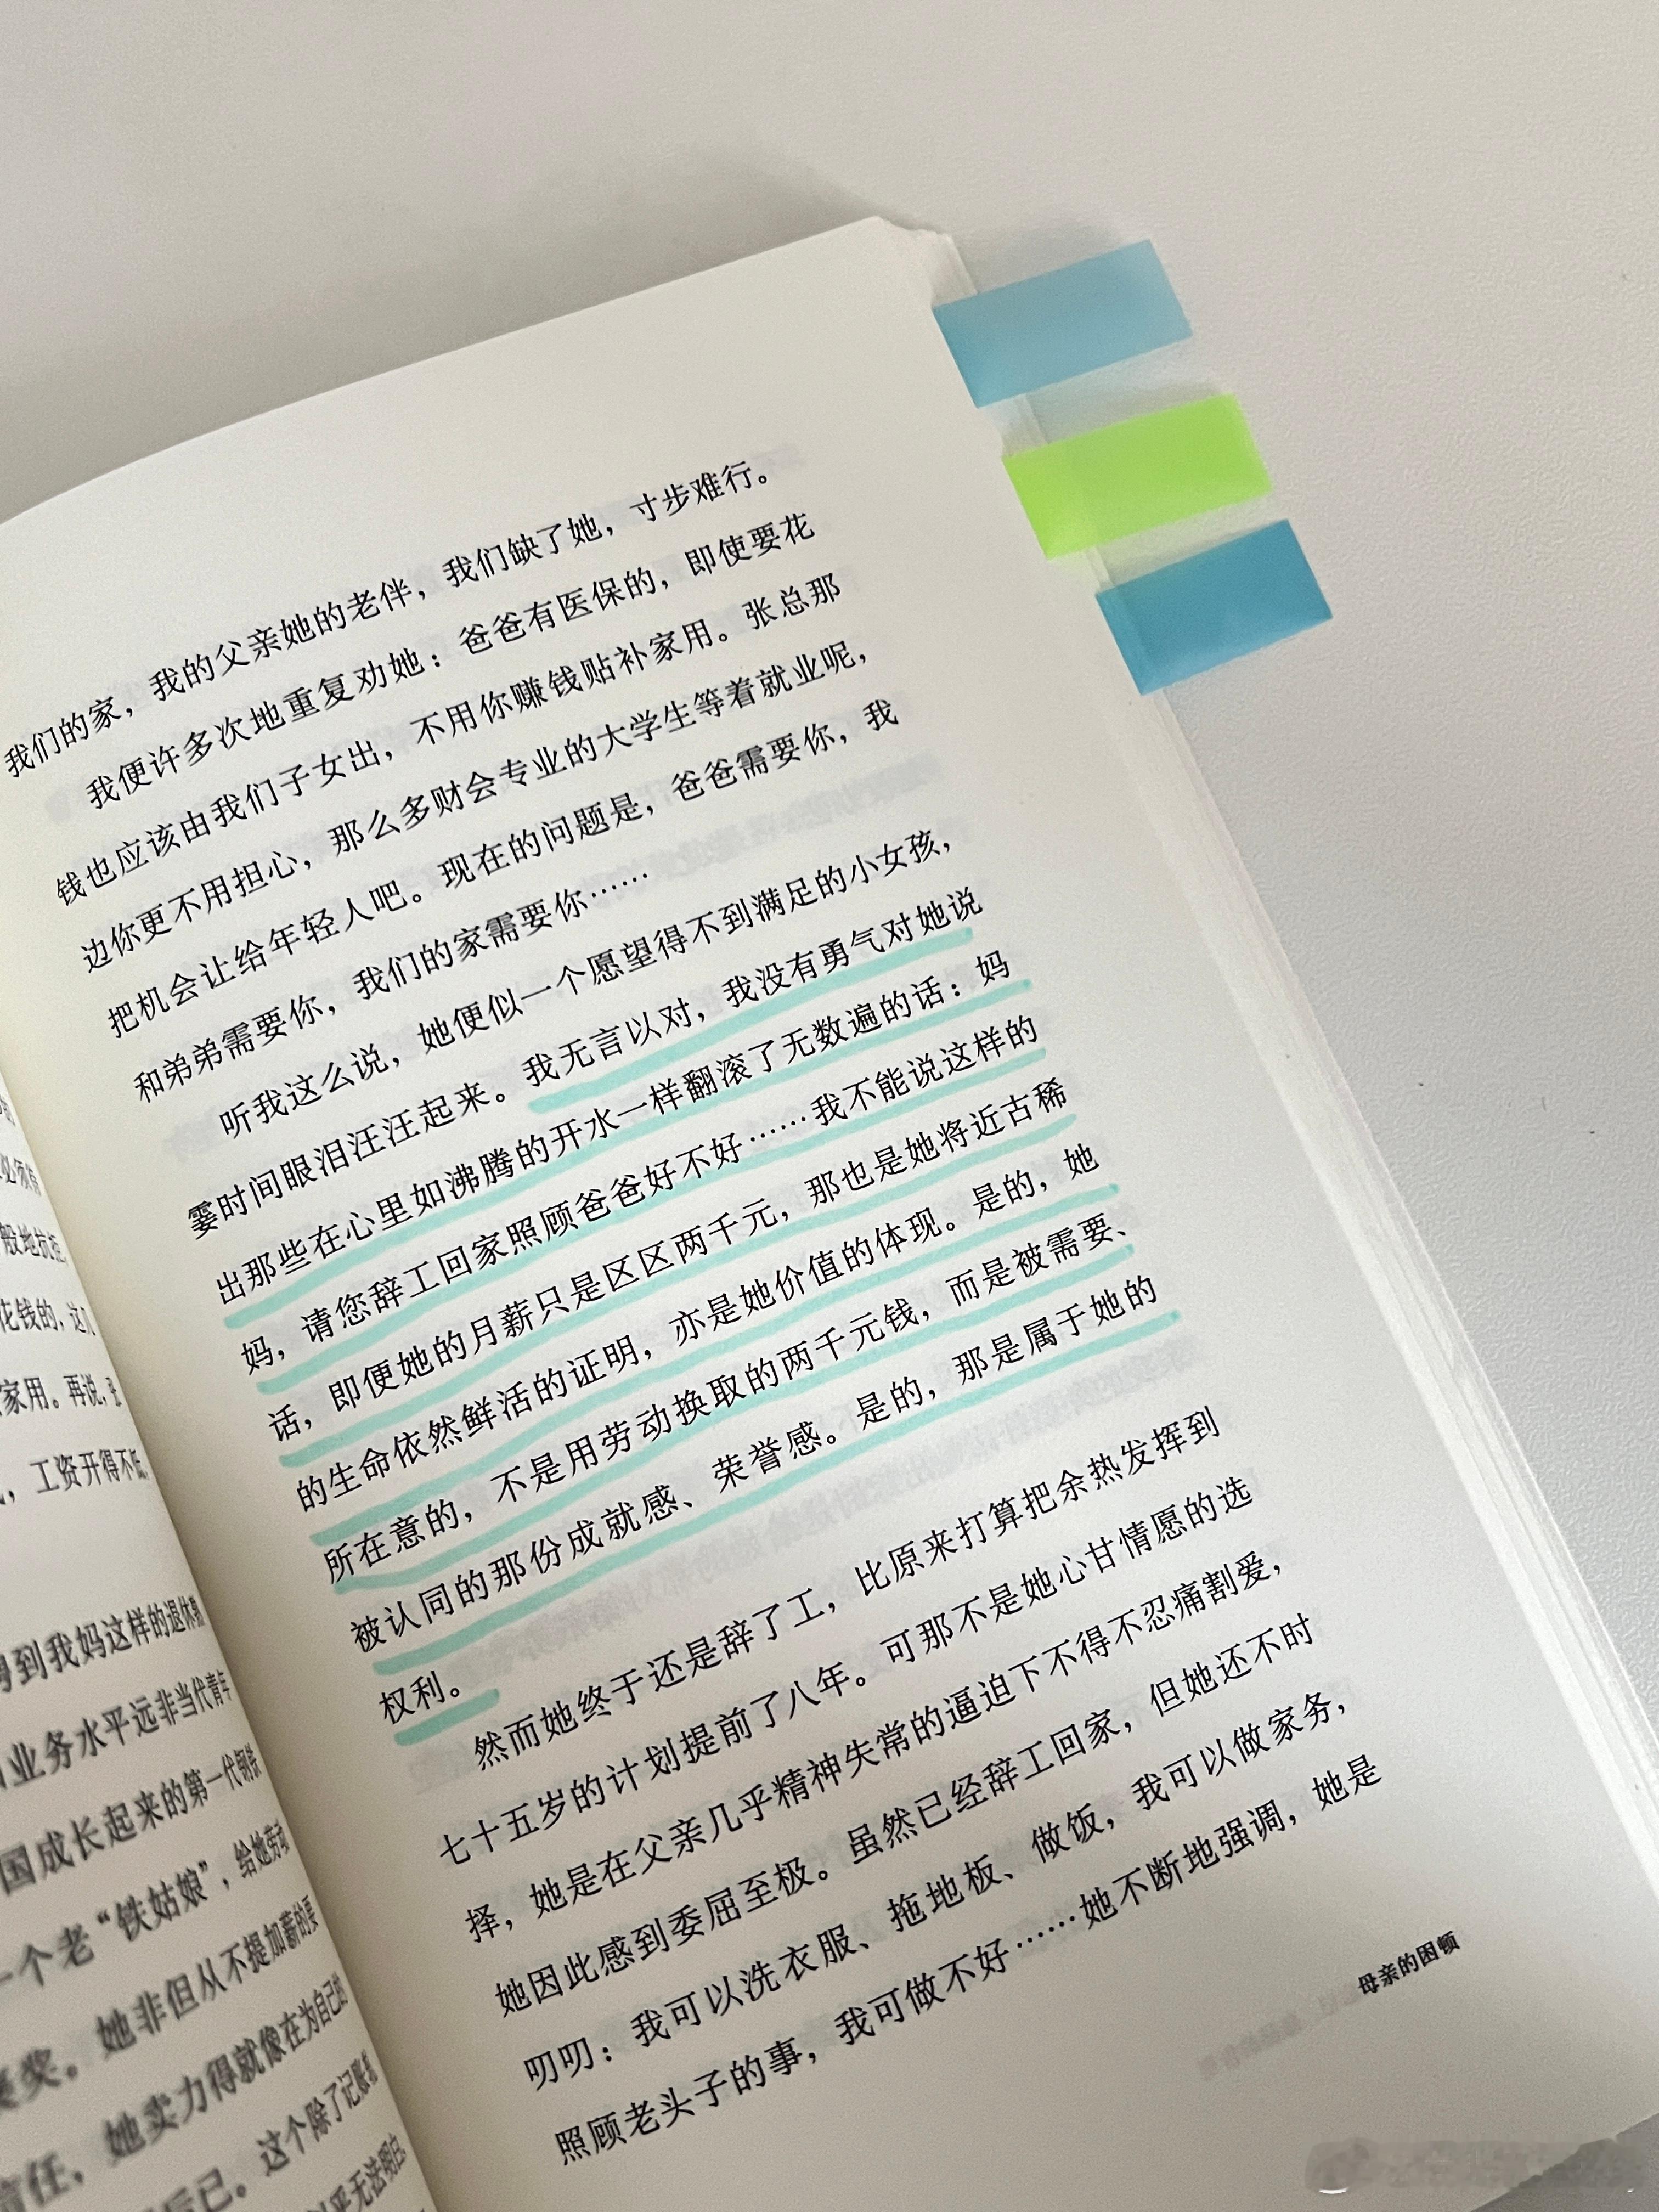 必须有
般地抗拒
花钱的，这几
家用。再说，张
，工资开得不低，
得到我妈这样的退休
业务水平远非当代青年
国成长起来的第一代钢铁
一个老“铁姑娘”，给她劳动
奖。她非但从不提加薪的要
责任，她卖力得就像在为自己的
后已。这个除了记账
乎无法明白，
我们的家，我的父亲她的老伴，我们缺了她，寸步难行。
我便许多次地重复劝她：爸爸有医保的，即使要花
钱也应该由我们子女出，不用你赚钱贴补家用。张总那
边你更不用担心，那么多财会专业的大学生等着就业呢，
把机会让给年轻人吧。现在的问题是，爸爸需要你，我
和弟弟需要你，我们的家需要你……
听我这么说，她便似一个愿望得不到满足的小女孩，
霎时间眼泪汪汪起来。我无言以对，我没有勇气对她说
出那些在心里如沸腾的开水一样翻滚了无数遍的话：妈
妈，请您辞工回家照顾爸爸好不好……我不能说这样的
话，即便她的月薪只是区区两千元，那也是她将近古稀
的生命依然鲜活的证明，亦是她价值的体现。是的，她
所在意的，不是用劳动换取的两千元钱，而是被需要、
被认同的那份成就感、荣誉感。是的，那是属于她的
权利。
然而她终于还是辞了工，比原来打算把余热发挥到
七十五岁的计划提前了八年。可那不是她心甘情愿的选
择，她是在父亲几乎精神失常的逼迫下不得不忍痛割爱，
她因此感到委屈至极。虽然已经辞工回家，但她还不时
叨叨：我可以洗衣服、拖地板、做饭，我可以做家务，
照顾老头子的事，我可做不好……她不断地强调，她是
母亲的困顿